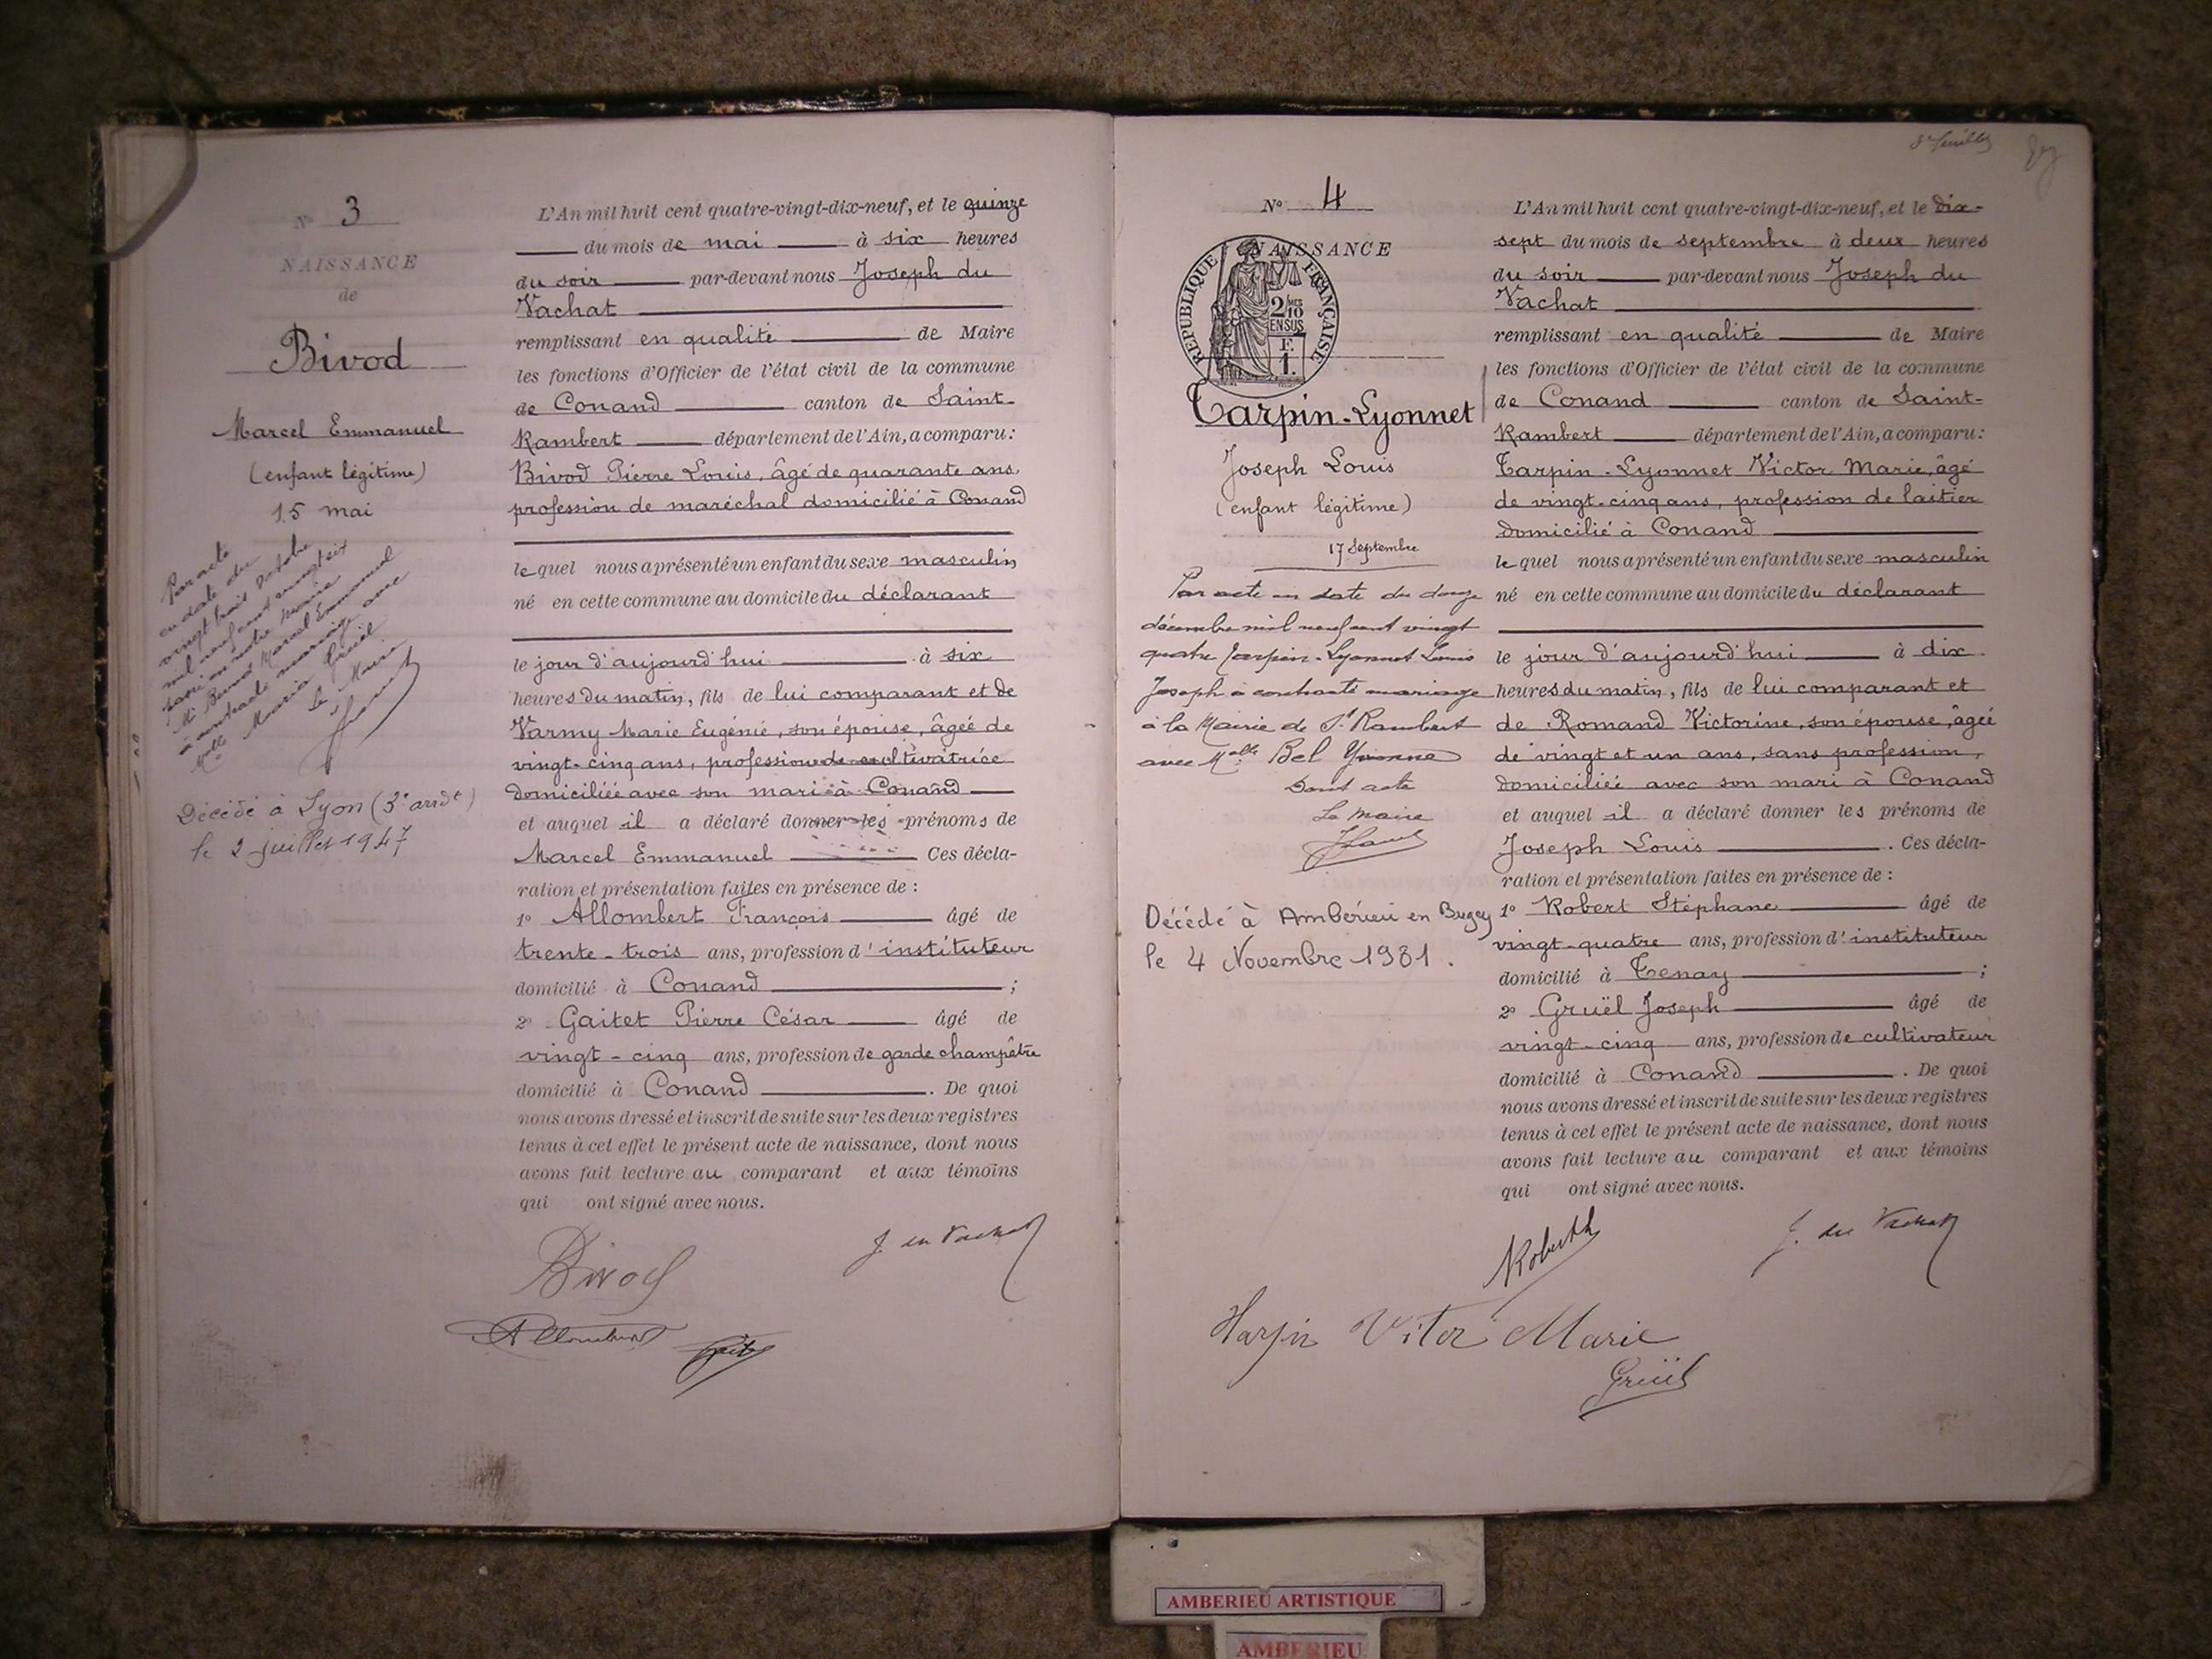 N° 3
NAISSANCE
de
Bivod
Marcel Emmanuel
(enfant légitime)
15 mai
Par acte
en date du
vingt huit octobre
mil neuf cent vingt six
passé en notre mairie
Mr Bivod Marcel Emmanuel
a contracté mariage avec
Melle Maria Gruël
Le Maire
Décédé à Lyon (3e arrdt)
le 2 juillet 1947
L'An mil huit cent quatre-vingt-dix-neuf, et le quinze
du mois de mai à six heures
du soir par-devant nous Joseph du
Vachat
remplissant en qualité de Maire
les fonctions d'Officier de l'état civil de la commune
de Conand canton de Saint-
Rambert département de l'Ain, a comparu :
Bivod Pierre Louis, âgé de quarante ans,
profession de maréchal domicilié à Conand
le quel nous a présenté un enfant du sexe masculin
né en cette commune au domicile du déclarant
le jour d'aujourd'hui à six
heures du matin, fils de lui comparant et de
Varmy Marie Eugénie, son épouse, âgée de
vingt-cinq ans, profession de cultivatrice
domiciliée avec son mari à Conand
et auquel il a déclaré donner les prénoms de
Marcel Emmanuel Ces décla-
ration et présentation faites en présence de :
1° Allombert François âgé de
trente-trois ans, profession d'instituteur
domicilié à Conand ;
2° Gaitet Pierre César âgé de
vingt-cinq ans, profession de garde champêtre
domicilié à Conand . De quoi
nous avons dressé et inscrit de suite sur les deux registres
tenus à cet effet le présent acte de naissance, dont nous
avons fait lecture au comparant et aux témoins
qui ont signé avec nous.
Bivod J. du Vachat
Allombert
N° 4
NAISSANCE
RÉPUBLIQUE FRANÇAISE
2/10 EN SUS
F.
1.
Tarpin-Lyonnet
Joseph Louis
(enfant légitime)
17 Septembre
Par acte en date du douze
décembre mil neuf cent vingt
quatre Tarpin-Lyonnet Louis
Joseph a contracté mariage
à la Mairie de St Rambert
avec Melle Bel Yvonne
Dont acte
Le Maire
Décédé à Ambérieu en Bugey
le 4 Novembre 1981.
L'An mil huit cent quatre-vingt-dix-neuf, et le dix-
sept du mois de septembre à deux heures
du soir par-devant nous Joseph du
Vachat
remplissant en qualité de Maire
les fonctions d'Officier de l'état civil de la commune
de Conand canton de Saint-
Rambert département de l'Ain, a comparu :
Tarpin-Lyonnet Victor Marie, âgé
de vingt-cinq ans, profession de laitier
domicilié à Conand
le quel nous a présenté un enfant du sexe masculin
né en cette commune au domicile du déclarant
le jour d'aujourd'hui à dix
heures du matin, fils de lui comparant et
de Romand Victorine, son épouse, âgée
de vingt et un ans, sans profession,
domiciliée avec son mari à Conand
et auquel il a déclaré donner les prénoms de
Joseph Louis . Ces décla-
ration et présentation faites en présence de :
1° Robert Stéphane âgé de
vingt-quatre ans, profession d'instituteur
domicilié à Tenay ;
2° Gruël Joseph âgé de
vingt-cinq ans, profession de cultivateur
domicilié à Conand . De quoi
nous avons dressé et inscrit de suite sur les deux registres
tenus à cet effet le présent acte de naissance, dont nous
avons fait lecture au comparant et aux témoins
qui ont signé avec nous.
J. du Vachat
Tarpin Vitor Marie
Gruël
AMBERIEU ARTISTIQUE
AMBERIEU